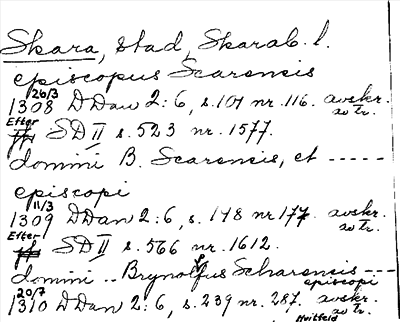 Skara, stad, Skarab. l.
episcopus Scarensis
26/3
1308 DDan 2:6, s.101 nr.116. avskr.
Efter SD II s.523 nr.1577. av tr.
domini B. Scarensis, et -----
episcopi
11/3
1309 DDan 2:6, s.148 nr 177. avskr.
Efter SD II s.566 nr.1612. av tr.
domini .. Brynolfus Scharensis ---
episcopi
20/7
1310 DDan 2:6, s.239 nr.287. avskr.
Huitfeld av tr.